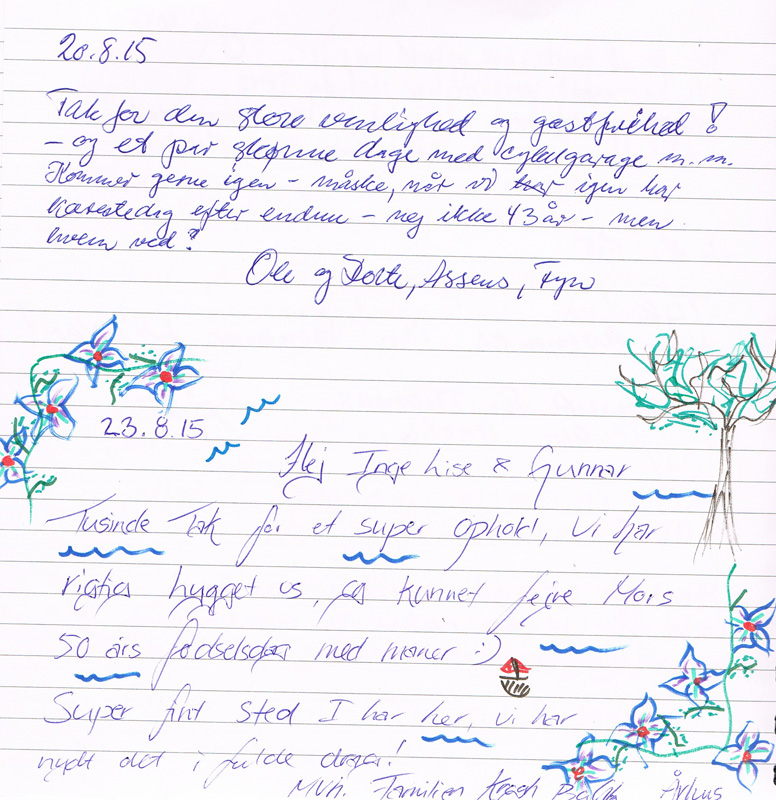 20.8.15
Tak for den store venlighed og gæstfrihed!
- og et par skønne dage med cykelgarage m.m.
Kommer gerne igen - måske, når vi har igen har
efter endnu - nej ikke 43 år - men
hvem ved?
Ole og Dorte, Assens, Fyn
23.8.15
Hej Inge Lise & Gunnar
Tusinde Tak for et super ophold, Vi har
rigtig hygget os, og kunnet fejre Mors
50 års fødselsdag med maner :)
Super fint sted I har her, vi har
nydt det i fulde drag!
Mvh. Familien Århus